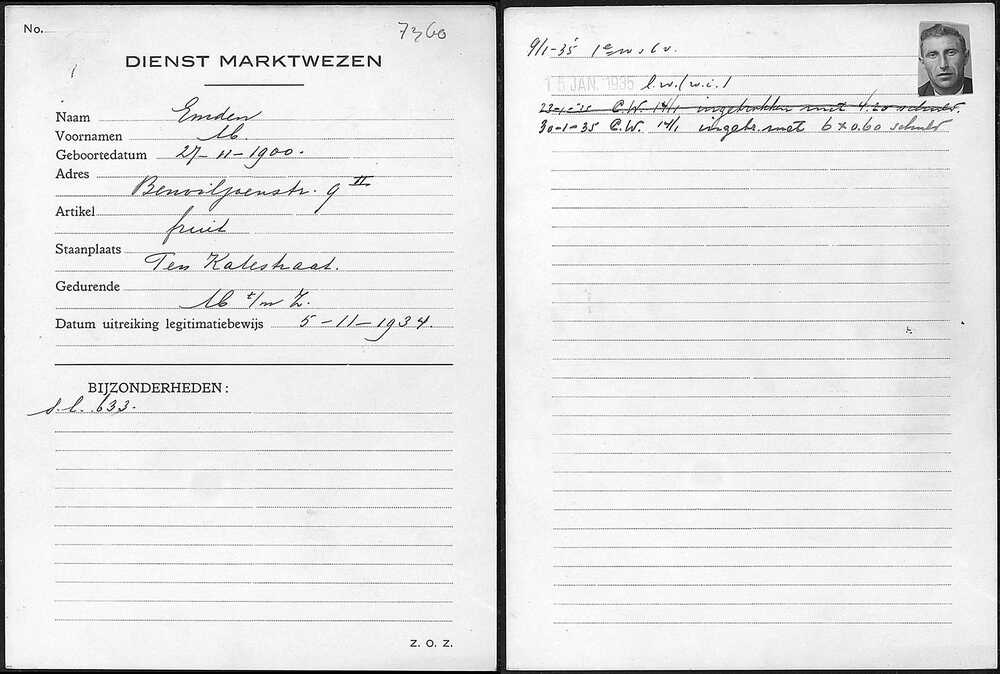 No. 7360
DIENST MARKTWEZEN
Naam Emden
Voornamen M.
Geboortedatum 27-11-1900.
Adres
Benviljoenstr. 9 II
Artikel
fruit
Staanplaats
Ten Katestraat.
Gedurende
M t/m Z.
Datum uitreiking legitimatiebewijs 5-11-1934.
BIJZONDERHEDEN:
s.l. 633.
Z. O. Z.
9/1-35 1e w s 6 v.
15 JAN. 1935 l.w. (w.i.)
23-1-35 C.W. 14/1 ingetrokken met 4.20 schuld.
30-1-35 C.W. 14/1 ingetr. met 6 x 0.60 schuld